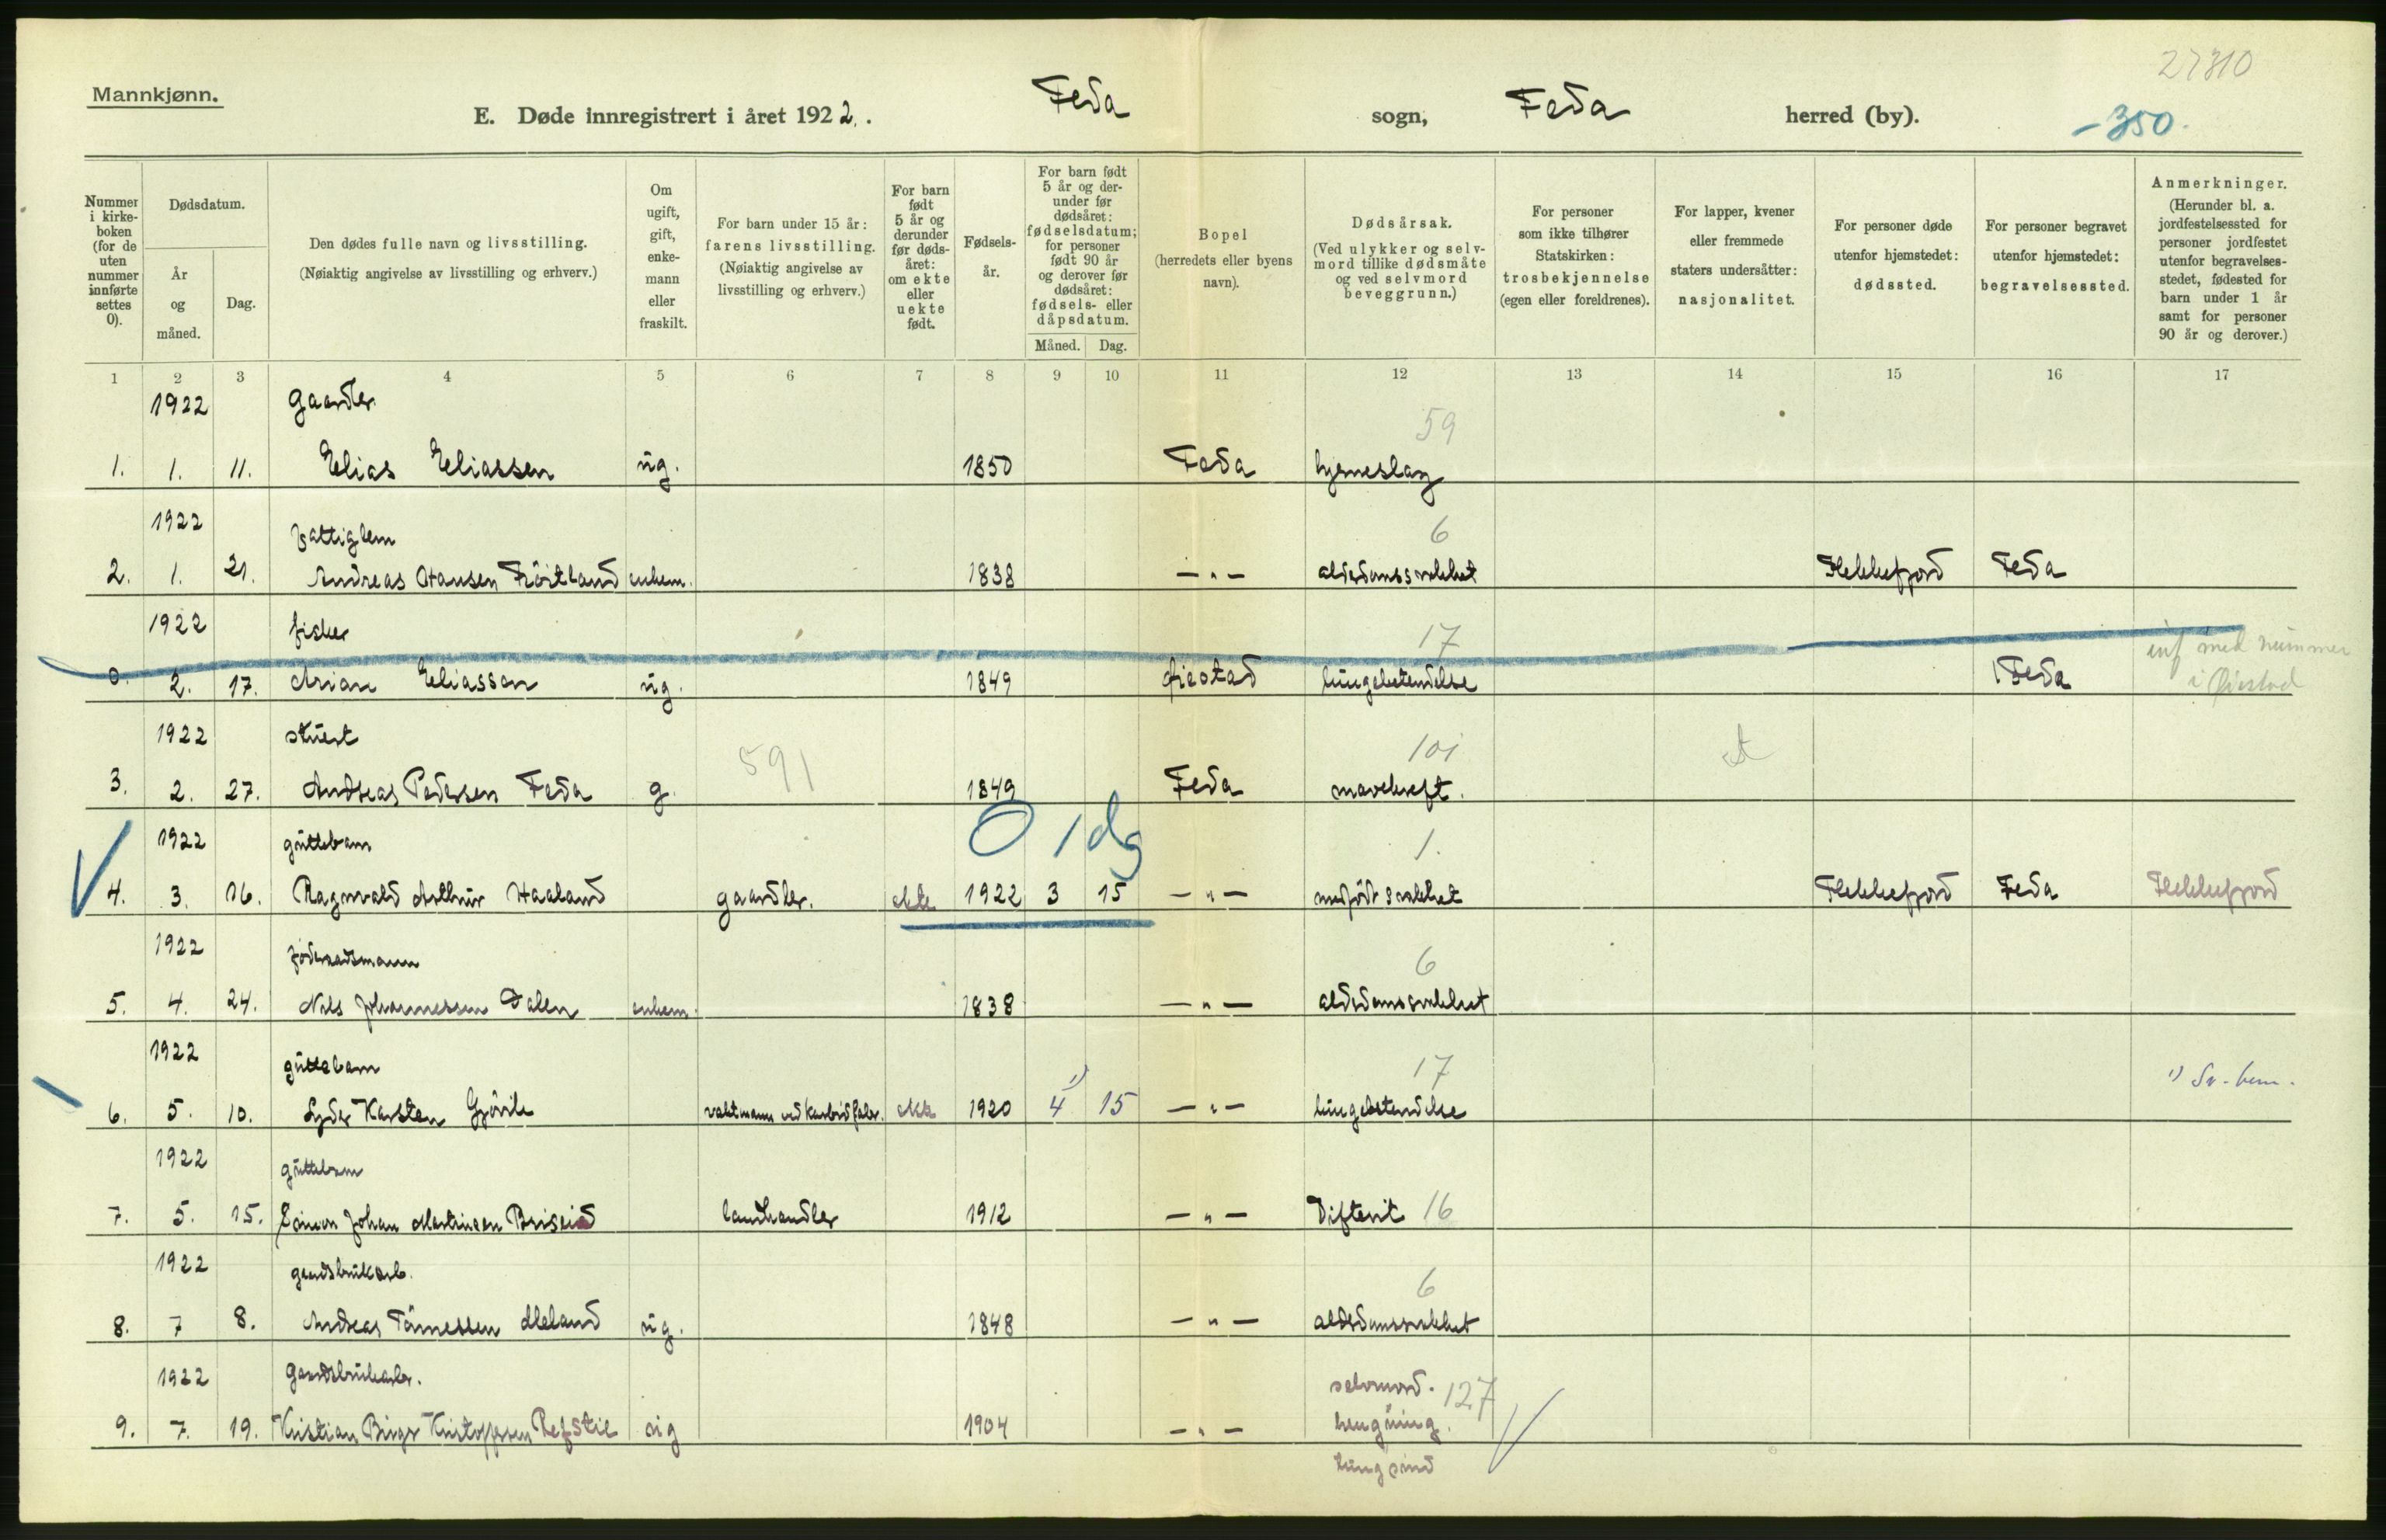 27310
Mannkjønn.
E. Døde innregistrert i året 1922. Feda sogn, Feda herred (by).
-350.
Nummer i kirkeboken (for de uten nummer innførte settes 0).
Dødsdatum.
År og måned.
Dag.
Den dødes fulle navn og livsstilling.
(Nøiaktig angivelse av livsstilling og erhverv.)
Om ugift, gift, enkemann eller fraskilt.
For barn under 15 år:
farens livsstilling.
(Nøiaktig angivelse av livsstilling og erhverv.)
For barn født 5 år og derunder før dødsåret: om ekte eller uekte født.
Fødselsår.
For barn født 5 år og derunder før dødsåret: fødselsdatum; for personer født 90 år og derover før dødsåret: fødsels- eller dåpsdatum.
Måned.
Dag.
Bopel
(herredets eller byens navn).
Dødsårsak.
(Ved ulykker og selvmord tillike dødsmåte og ved selvmord beveggrunn.)
For personer som ikke tilhører Statskirken:
trosbekjennelse
(egen eller foreldrenes).
For lapper, kvener eller fremmede staters undersåtter:
nasjonalitet.
For personer døde utenfor hjemstedet:
dødssted.
For personer begravet utenfor hjemstedet:
begravelsessted.
Anmerkninger.
(Herunder bl. a. jordfestelsessted for personer jordfestet utenfor begravelsesstedet, fødested for barn under 1 år samt for personer 90 år og derover.)
1 2 3 4 5 6 7 8 9 10 11 12 13 14 15 16 17
1922 59
1. 1. 11. Elias Eliassen ug. 1850 Feda hjerneslag
1922 fattiglem 6
2. 1. 21. Andreas Hansen Fröitland enkem. 1838 — " — alderdomssvakhet Flekkefjord Feda
1922 fisker 17 inf med nummer
0. 2. 17. Arian Eliassen ug. 1849 lungebetendelse Feda i
1922 stuert 591 101
3. 2. 27. Andreas Pedersen Feda g. 1849 Feda mavekreft.
1922 guttebarn 0 1 dg 1.
4. 3. 16. Ragnvald Arthur Haaland gaardbr. ekte 1922 3 15 — " — medfödt svakhet Flekkefjord Feda Flekkefjord
1922 föderaadsmann 6
5. 4. 24. Nils Johannessen Dalen enkem. 1838 — " — alderdomssvakhet
1922 guttebarn 1) 17 1)
6. 5. 10. Karsten vaktmann ved karbidfabr. ekte 1920 4 15 — " — lungebetendelse
1922 guttebarn
7. 5. 15. Johan Briseid landhandler 1912 — " — Difterit 16
1922 gaardsbrukarb. 6
8. 7 8. Andreas Tönnessen ug. 1848 — " — alderdomssvakhet
1922 gaardsbrukarb. selvmord. 127
9. 7. 19. Kristian Birger Kristoffersen Refstie ug 1904 — " — hengning.
tungsind